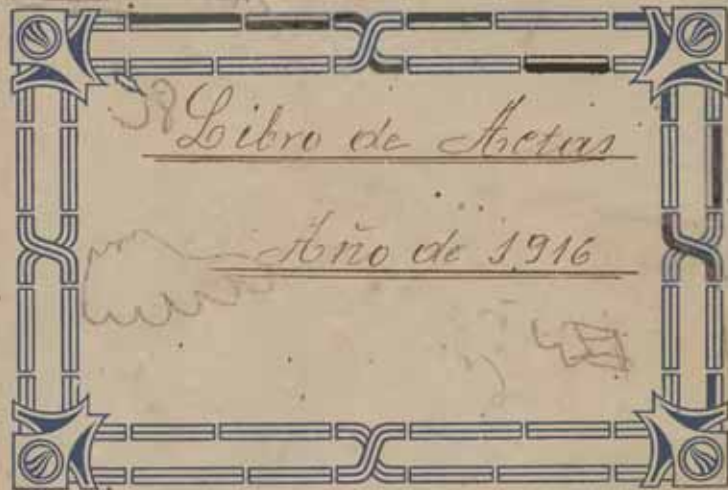 Libro de Actas
Año de 1916